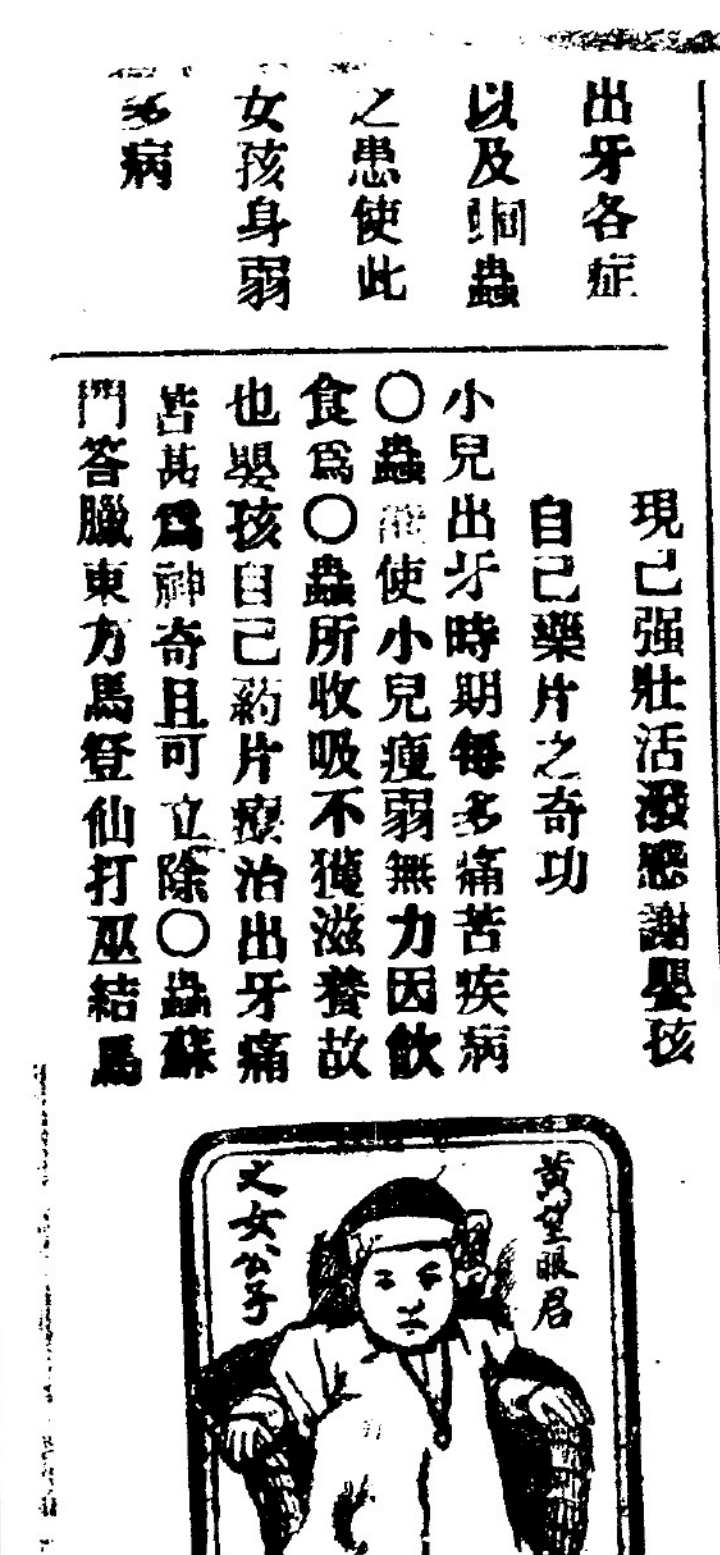 出牙各症
以及蛔蟲
之患使此
女孩身弱
多病
現已强壯活潑感謝嬰孩
自己藥片之奇功
小兒出牙時期每多痛苦疾病
〇蟲能使小兒瘦弱無力因飲
食爲〇蟲所收吸不獲滋養故
也嬰孩自己葯片療治出牙痛
苦甚爲神奇且可立除〇蟲蘇
門答臘東方馬登仙打巫結馬
黃望眼君
之女公子